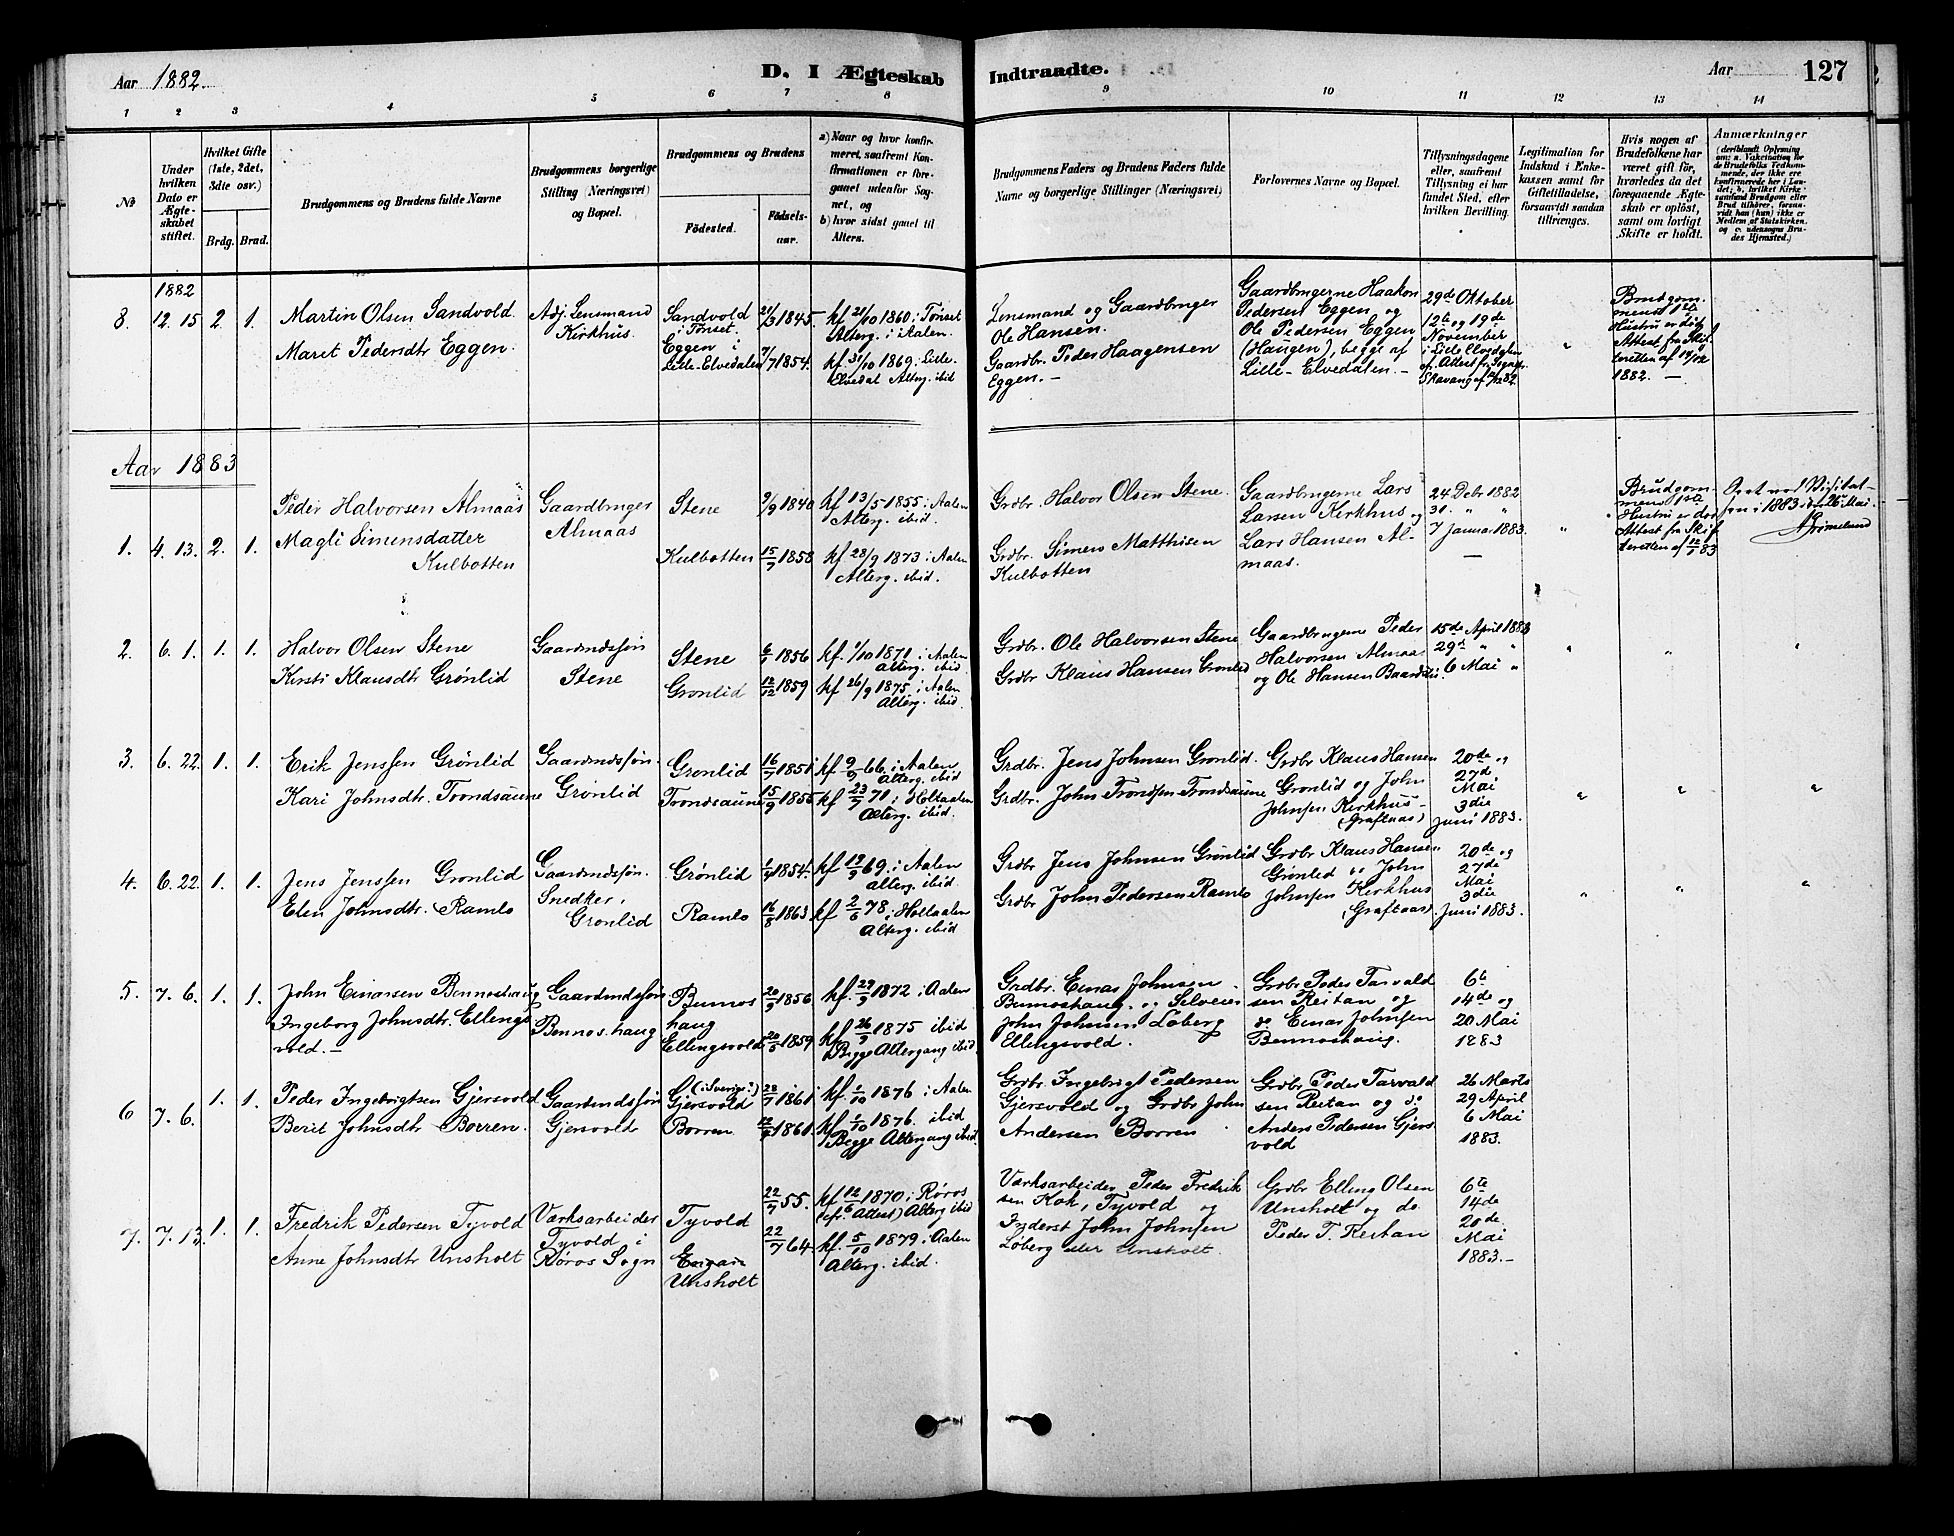 Aar 1882.
D. I Ægteskab Indtraadte.
Aar 127
1 2 3 4 5 6 7 8 9 10 11 12 13 14
№
Under hvilken Dato er Ægteskabet stiftet.
Hvilket Gifte (1ste, 2det, 3die osv.)
Brdg. Brud.
Brudgommens og Brudens fulde Navne
Brudgommens borgerlige Stilling (Næringsvei) og Bopæl.
Brudgommens og Brudens
Fødested.
Fødselsaar.
a) Naar og hvor konfirmeret, saafremt Konfirmationen er foregaaet udenfor Sognet, og
b) hvor sidst gaaet til Alters.
Brudgommens Faders og Brudens Faders fulde Navne og borgerlige Stillinger (Næringsvei)
Forlovernes Navne og Bopæl.
Tillysningsdagene eller, saafremt Tillysning ei har fundet Sted, efter hvilken Bevilling.
Legitimation for Indskud i Enkekassen samt for Giftetilladelse, forsaavidt saadan tiltrænges.
Hvis nogen af Brudefolkene har været gift før, hvorledes da det foregaaende Ægteskab er opløst, samt om lovligt Skifte er holdt.
Anmærkninger (deriblandt Oplysning om: a. Vakcination for de Brudefolks Vedkommende, der ikke ere konfirmerede her i Landet; b. hvilket Kirkesamfund Brudgom eller Brud tilhører, forsaavidt han (hun) ikke er Medlem af Statskirken, og c. udensogns Brudes Hjemsted.)
1882
8. 12. 15 2. 1.
Martin Olsen Sandvold.
Maret Pedersdtr Eggen.
Adj. Lensmand
Kirkhus.
Sandvold
i Tønset.
Eggen i
Lille-Elvedalen
21/3 1845.
7/7 1854.
kf 21/10 1860 i Tønset
Alterg. i Aalen.
kf. 31/10 1869 i Lille-
Elvedal Alterg. ibid
Lensmand og Gaardbruger
Ole Hansen.
Gaardbr. Peder Haagensen
Eggen. —
Gaardbrugerne Haakon
Pedersen Eggen og
Ole Pedersen Eggen
(Haugen), begge af
Lille-Elvedalen. —
29de Oktober
12te og 19de
November
i Lille Elvedalen
cf. Attest fr. Sognepr.
Skavang af /12 82.
"
Brudgommens 1ste
Hustru er død
Attest fra Skifteretten af 14/12
1882. —
Aar 1883
1. 4. 13. 2. 1.
Peder Halvorsen Almaas
Magli Simensdatter
Kulbotten
Gaardbruger
Almaas
Stene
Kulbotten
9/9 1840
15/7 1858
kf 13/5 1855 i Aalen
Alterg. ibid.
kf 28/9 1873 i Aalen
Alterg. ibid.
Grdbr. Halvor Olsen Stene.
Grdbr. Simen Matthisen
Kulbotten
Gaardbrugerne Lars
Larsen Kirkhus og
Lars Hansen Almaas.
24 Debr 1882
31. " "
7 Januar 1883.
—
"
Brudgommens 1ste
Hustru er død
Attest fra Skifteretten af 12/1 83
Seet ved Visitatsen i 1883 i 26 Mai.
2. 6. 1. 1. 1.
Halvor Olsen Stene
Kirsti Klausdtr Grønlid
Gaardmdssøn
Stene
Stene
Grønlid
6/9 1856
12/12 1859
kf. 1/10 1871 i Aalen
Alterg. ibid
kf 26/9 1875 i Aalen
Alterg. ibid.
Grdbr. Ole Halvorsen Stene
Grdbr Klaus Hansen Grønlid
Gaardbrugerne Peder
Halvorsen Almaas
og Ole Hansen
15de April 1883
29de " "
6 Mai "
" " "
3. 6. 22. 1. 1.
Erik Jenssen Grønlid
Kari Johnsdtr. Trondsaune
Gaardmdssøn.
Grønlid
Grønlid
Trondsaune
16/7 1851
15/9 1855
kf 9/9 66. i Aalen
Alterg. ibid
kf 23/7 71 i Holtaalen
Alterg. ibid.
Grdbr. Jens Johnsen Grønlid.
Grdbr. John Trondsen Trondsaune
Grdbr Klaus Hansen
Grønlid og John
Johnsen Kirkhus
(Graftaas)
20de og
27de
Mai
3die
Juni 1883.
" " "
4. 6. 22. 1. 1.
Jens Jenssen Grønlid
Elen Johnsdtr. Ramlo
Gaardmdssøn.
Snedker.
Grønlid
Grønlid
Ramlo
1/9 1854.
16/8 1863
kf 19/9 69. i Aalen
Alterg. ibid.
kf 2/6 78. i Holtaalen
Alterg. ibid
Grdbr Jens Johnsen Grønlid
Grdbr John Pedersen Ramlo
Grdbr Klaus Hansen
Grønlid og John
Johnsen Kirkhus
(Graftaas)
20de og
27de
Mai
3die
Juni 1883.
" " "
5. 7. 6. 1. 1.
John Einarsen Bennoshaug
Ingeborg Johnsdtr. Ellingsvold. —
Gaardmdssøn.
Bennoshaug
Bennoshaug
Ellingsvold
20/9 1856
20/5 1859
kf. 29/9 1872 i Aalen
kf 26/9 1875 ibid
Begge Altergang ibid.
Grdbr. Einar Johnsen
Bennoshaug. og Selveier
John Johnsen Løberg
Ellingsvold.
Grdbr Peder Tarvaldsen Reitan og
do Einar Johnsen
Bennoshaug.
6te
14de og
20 Mai
1883
6 7. 6. 1. 1.
Peder Ingebrigtsen Gjersvold
Berit Johnsdtr Borren.
Gaardmdssøn
Gjersvold
(i Sverige?)
Gjersvold
Borren
28/7 1861
1861
kf. 1/10 1876 i Aalen
kf. 1/10 1876. ibid
Begge Altergang ibid
Grdbr. Ingebrigt Pedersen
Gjersvold og Grdbr John
Andersen Borren
Grdbr Peder Tarvaldsen Reitan og do
Anders Pedersen Gjersvold
26 Marts
29 April
6 Mai
1883.
7. 7. 13. 1. 1.
Fredrik Pedersen Tyvold
Anne Johnsdtr Unsholt
Værksarbeider
Tyvold i
Røros Sogn
Tyvold
Unsholt
22/7 55.
22/7 64
kf. 12/6 1870 i Røros
(cfr. Attest) Alterg ibid
kf. 5/10 1879 i Aalen
Alterg. ibid.
Værksarbeider Peder Fredriksen Kok, Tyvold og
Inderst John Johnsen
Løberg eller Unsholt.
Grdbr Elling Olsen
Unsholt og do
Peder T. Reitan
6te
14de
20de
Mai
1883. —